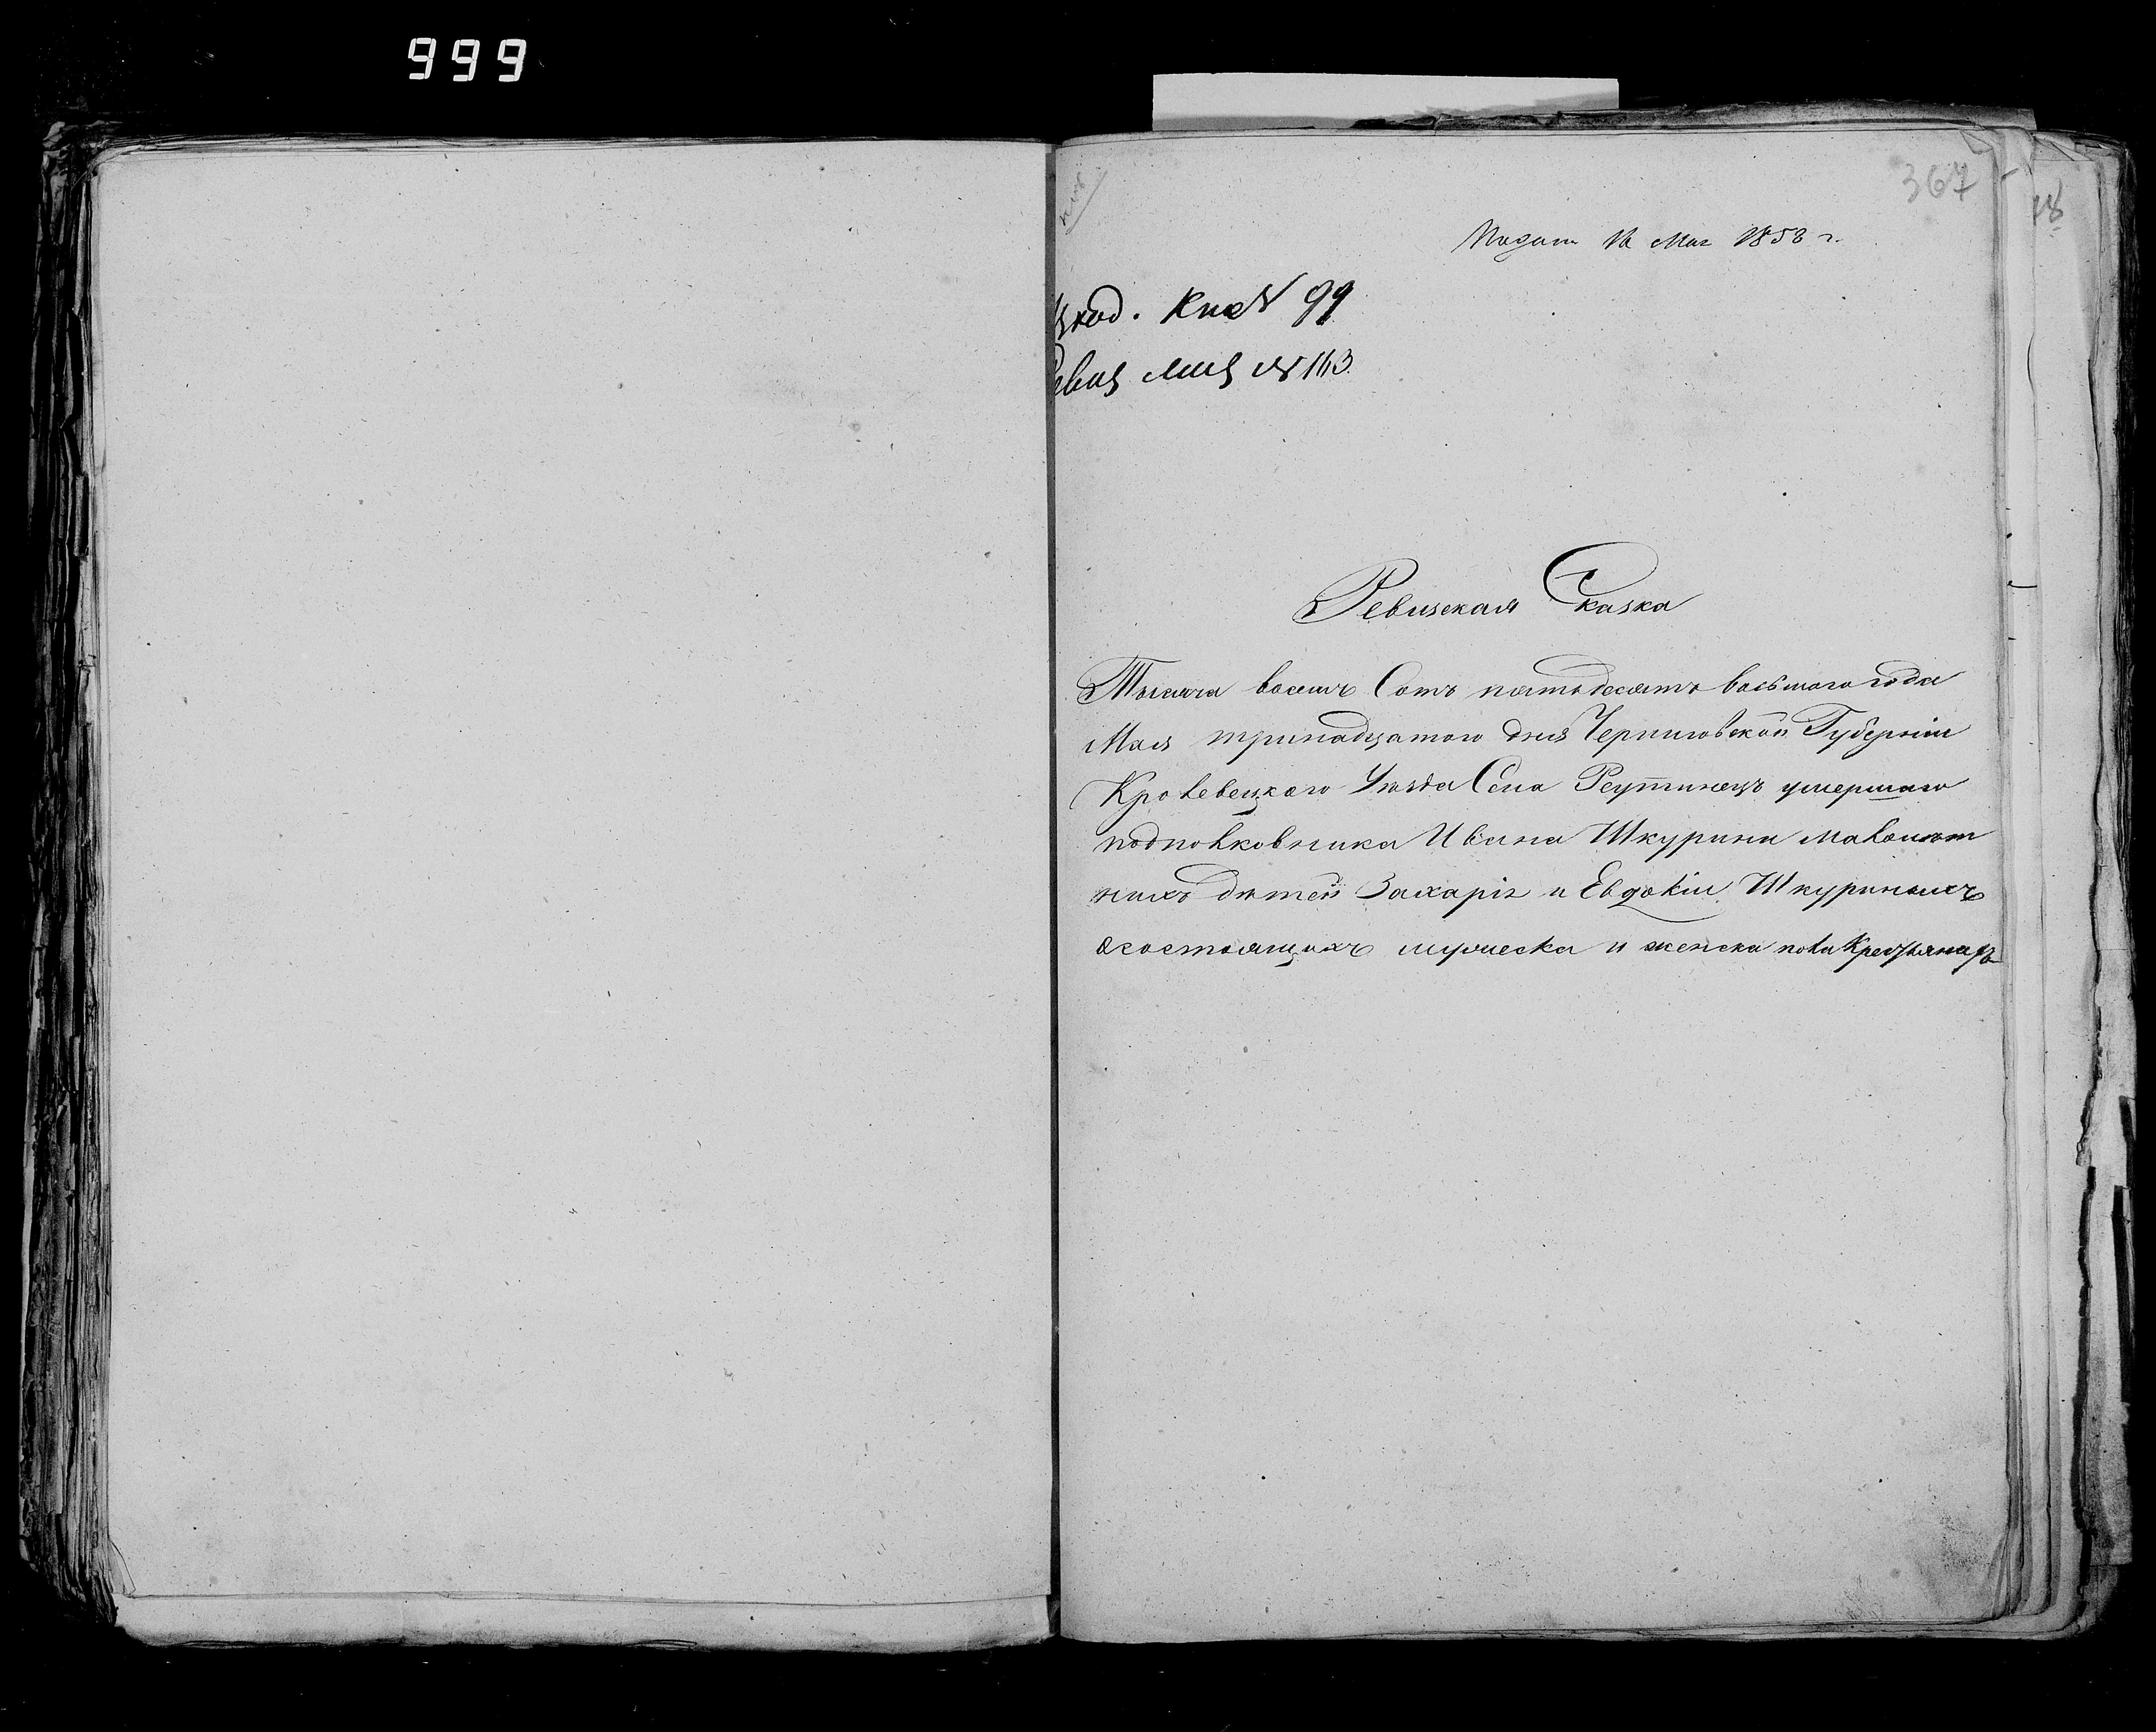 999
367
18
Подат 16 Мая 1858 г.
Вход. Кн. № 99
Ревиз. лиц № 163
Ревизская Сказка
Тысяча восемъ Сотъ пятьдесятъ восьмого года
Мая тринадцатого дня Черниговской Губерніи
Кролевецкого Уѣзда Села Реутинецъ умершаго
подполковника Ивана Шкурина малолѣт
нихъ дѣтей Захарія и Евдокіи Шкуриныхъ
осостоящихъ мужеска и женска пола Крестьянахъ